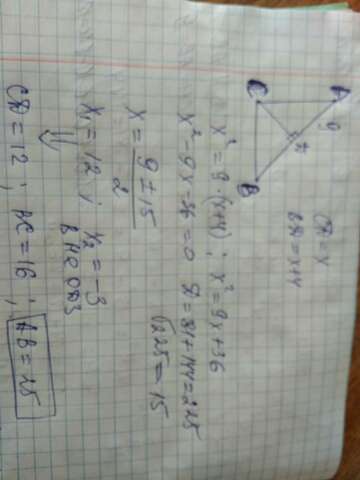 A
9
C
D
B
CD = x
BD = x+4
x² = 9·(x+4); x² = 9x+36
x² - 9x - 36 = 0 D = 81+144 = 225
√225 = 15
x = (9 ± 15)/2
x₁ = 12; x₂ = -3
вне ОДЗ
⇓
CD = 12; BC = 16; AB = 25